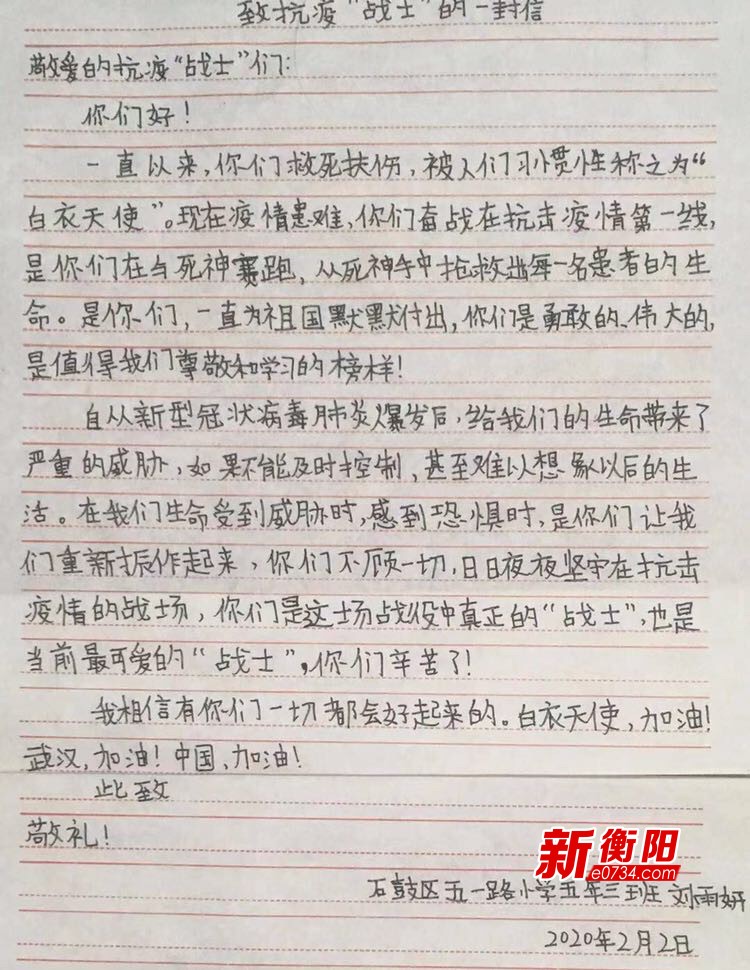 致抗疫“战士”的一封信
敬爱的抗疫“战士”们:
你们好!
一直以来,你们救死扶伤,被人们习惯性称之为“
白衣天使”。现在疫情患难,你们奋战在抗击疫情第一线,
是你们在与死神赛跑,从死神手中抢救出每一名患者的生
命。是你们,一直为祖国默默付出,你们是勇敢的、伟大的,
是值得我们尊敬和学习的榜样!
自从新型冠状病毒肺炎爆发后,给我们的生命带来了
严重的威胁,如果不能及时控制,甚至难以想象以后的生
活。在我们生命受到威胁时,感到恐惧时,是你们让我
们重新振作起来,你们不顾一切,日日夜夜坚守在抗击
疫情的战场,你们是这场战役中真正的“战士”,也是
当前最可爱的“战士”,你们辛苦了!
我相信有你们一切都会好起来的。白衣天使,加油!
武汉,加油!中国,加油!
此致
敬礼!
新衡阳
e0734.com
石鼓区五一路小学五年三班 刘雨妍
2020年2月2日